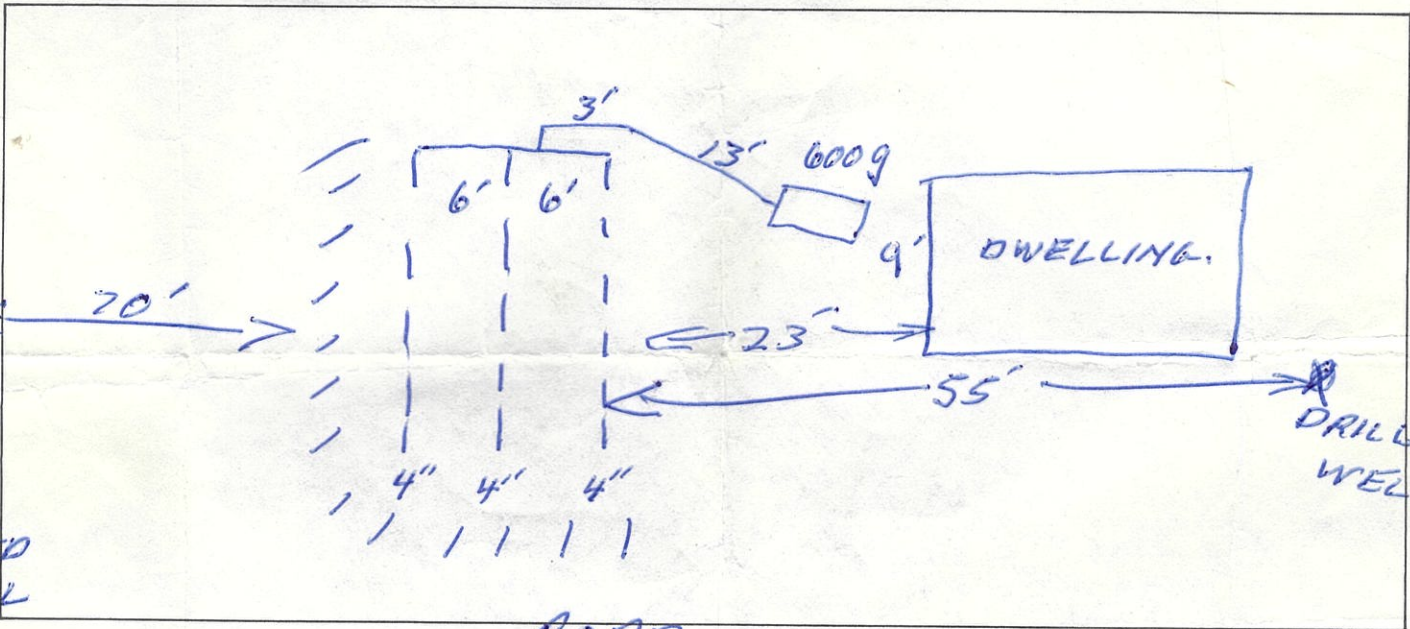 3'
13' 600g
6' 6'
9' DWELLING.
70'
23'
55'
DRILL
WEL
4" 4" 4"